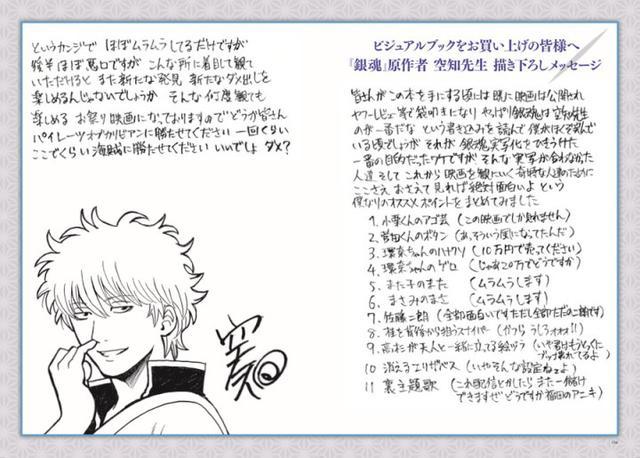 ビジュアルブックをお買い上げの皆様へ
『銀魂』原作者 空知先生 描き下ろしメッセージ
皆さんがこの本を手にする頃には既に映画は公開され
ヤフーレビュー等で袋叩きになり やっぱり銀魂は空知先生
のが一番だな という書き込みを読んで 僕がほくそ笑んで
いる頃でしょうが それが 銀魂実写化をひきうけた
一番の目的だったワケですが そんな実写が合わなかった
人達 そして これから映画を観にいく奇特な人達のために
ここさえ おさえて見れば絶対面白いよ という
僕なりのオススメポイントをまとめてみました
1. 小栗くんのアゴ芸 (この映画でしか見れません)
2. 菅田くんのボタン (あ、そういう風になってたんだ)
3. 環奈ちゃんのハナクソ (10万円で売ってください)
4. 環奈ちゃんのゲロ (じゃあ20万でどうですか)
5. また子のまた (ムラムラします)
6. まさみのまさ (ムラムラします)
7. 佐藤二朗 (全部面白いですただし全部ただの二朗です)
8. 桂を背後から狙うスナイパー (かつら うしろォォォ!!)
9. 高杉が天人と一緒に立てる絵ヅラ (いや君はもうとっくに
ブッ壊れてるよ)
10 消えるエリザベス (いやそんな設定ねェよ)
11 裏主題歌 (これ配信とかしたら また一儲け
できますぜ どうですか福田のアニキ)
というカンジで ほぼムラムラしてるだけですが
後半 ほぼ悪口ですが こんな所に着目して観て
いただけると また新たな発見 新たなダメ出しを
楽しめるんじゃないでしょうか そんな何度観ても
楽しめる お祭り映画になっておりますのでどうか皆さん
パイレーツオブカリビアンに勝たせてください 一回くらい
ここでくらい海賊に勝たせてください いいでしょ ダメ?
空知